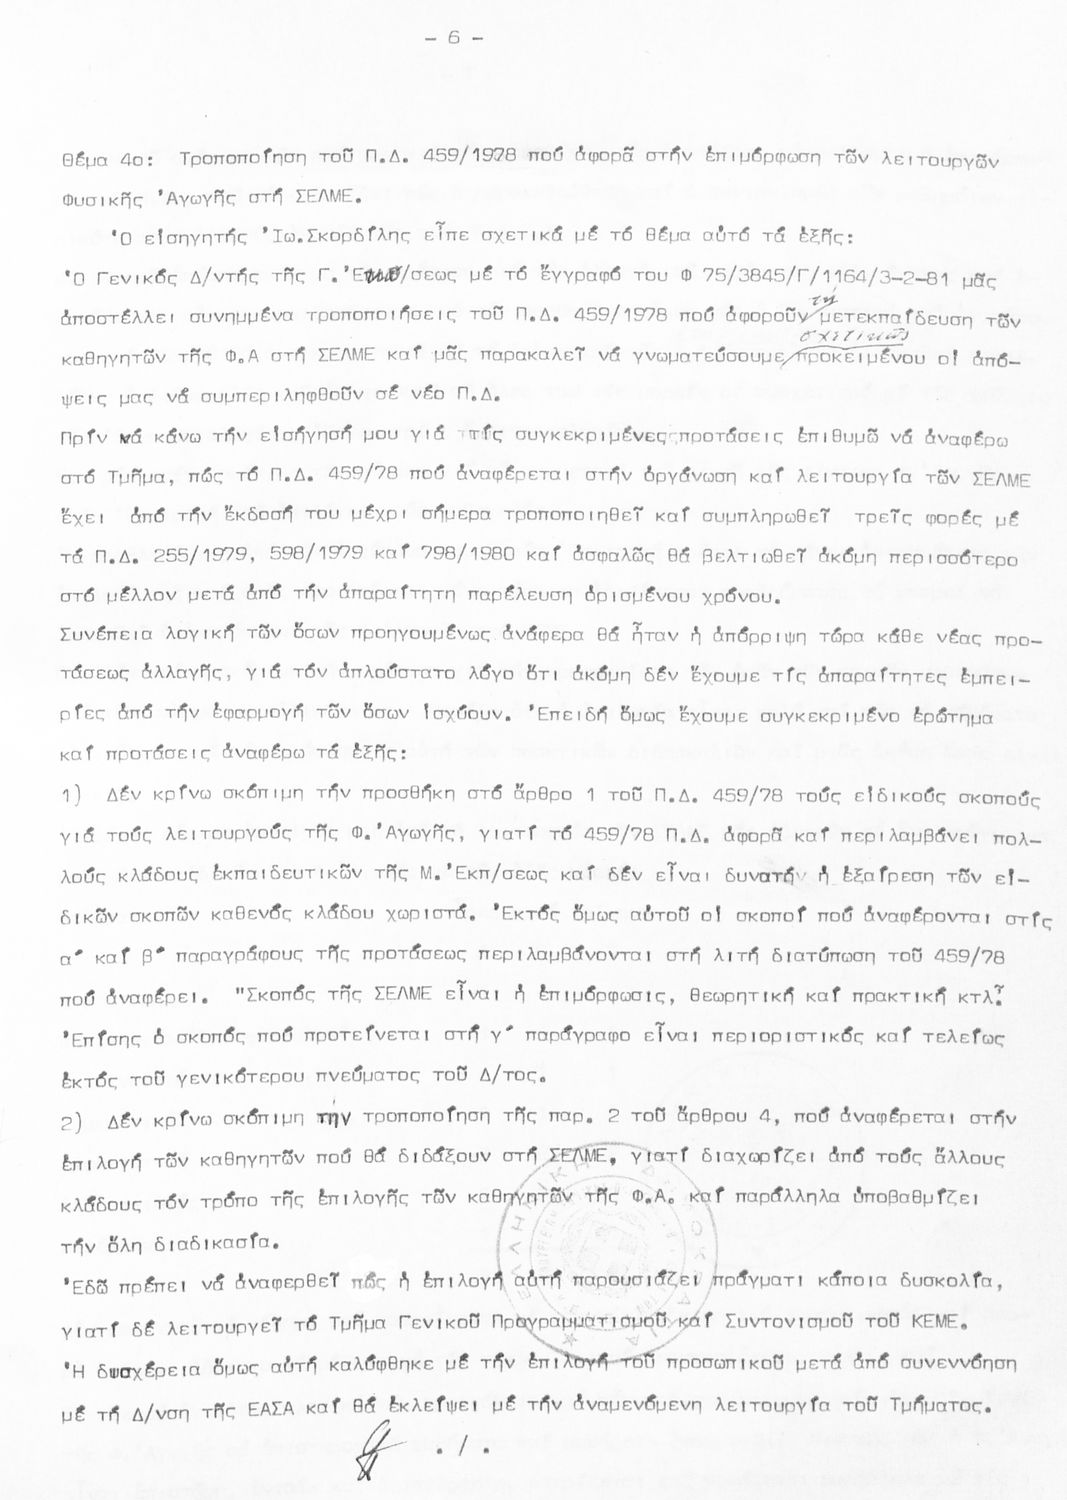 - 6 -
θέμα 4ο: Τροποποίηση τοῦ Π.Δ. 459/1978 πού ἀφορᾶ στήν ἐπιμόρφωση τῶν λειτουργῶν
Φυσικῆς Ἀγωγῆς στή ΣΕΛΜΕ.
Ὁ εἰσηγητής Ἰω.Σκορδίλης εἶπε σχετικά μέ τό θέμα αὐτό τά ἑξῆς:
Ὁ Γενικός Δ/ντής τῆς Γ. /σεως μέ τό ἔγγραφό του Φ 75/3845/Γ/1164/3-2-81 μᾶς
ἀποστέλλει συνημμένα τροποποιήσεις τοῦ Π.Δ. 459/1978 πού ἀφοροῦν τή μετεκπαίδευση τῶν
καθηγητῶν τῆς Φ.Α στή ΣΕΛΜΕ καί μᾶς παρακαλεῖ νά γνωματεύσουμε σχετικῶς προκειμένου οἱ ἀπό-
ψεις μας νά συμπεριληφθοῦν σέ νέο Π.Δ.
Πρίν νά κάνω τήν εἰσήγησή μου γιά τίς συγκεκριμένες προτάσεις ἐπιθυμῶ νά ἀναφέρω
στό Τμῆμα, πώς τό Π.Δ. 459/78 πού ἀναφέρεται στήν ὀργάνωση καί λειτουργία τῶν ΣΕΛΜΕ
ἔχει ἀπό τήν ἔκδοσή του μέχρι σήμερα τροποποιηθεῖ καί συμπληρωθεῖ τρεῖς φορές μέ
τά Π.Δ. 255/1979, 598/1979 καί 798/1980 καί ἀσφαλῶς θά βελτιωθεῖ ἀκόμη περισσότερο
στό μέλλον μετά ἀπό τήν ἀπαραίτητη παρέλευση ὁρισμένου χρόνου.
Συνέπεια λογική τῶν ὅσων προηγουμένως ἀνάφερα θά ἦταν ἡ ἀπόρριψη τώρα κάθε νέας προ-
τάσεως ἀλλαγῆς, γιά τόν ἁπλούστατο λόγο ὅτι ἀκόμη δέν ἔχουμε τίς ἀπαραίτητες ἐμπει-
ρίες ἀπό τήν ἐφαρμογή τῶν ὅσων ἰσχύουν. Ἐπειδή ὅμως ἔχουμε συγκεκριμένο ἐρώτημα
καί προτάσεις ἀναφέρω τά ἑξῆς:
1) Δέν κρίνω σκόπιμη τήν προσθήκη στό ἄρθρο 1 τοῦ Π.Δ. 459/78 τούς εἰδικούς σκοπούς
γιά τούς λειτουργούς τῆς Φ. Ἀγωγῆς, γιατί τό 459/78 Π.Δ. ἀφορᾶ καί περιλαμβάνει πολ-
λούς κλάδους ἐκπαιδευτικῶν τῆς Μ. Ἐκπ/σεως καί δέν εἶναι δυνατήν ἡ ἐξαίρεση τῶν εἰ-
δικῶν σκοπῶν καθενός κλάδου χωριστά. Ἐκτός ὅμως αὐτοῦ οἱ σκοποί πού ἀναφέρονται στίς
α΄ καί β΄ παραγράφους τῆς προτάσεως περιλαμβάνονται στή λιτή διατύπωση τοῦ 459/78
πού ἀναφέρει. "Σκοπός τῆς ΣΕΛΜΕ εἶναι ἡ ἐπιμόρφωσις, θεωρητική καί πρακτική κτλ".
Ἐπίσης ὁ σκοπός πού προτείνεται στή γ΄ παράγραφο εἶναι περιοριστικός καί τελείως
ἐκτός τοῦ γενικότερου πνεύματος τοῦ Δ/τος.
2) Δέν κρίνω σκόπιμη τήν τροποποίηση τῆς παρ. 2 τοῦ ἄρθρου 4, πού ἀναφέρεται στήν
ἐπιλογή τῶν καθηγητῶν πού θά διδάξουν στή ΣΕΛΜΕ, γιατί διαχωρίζει ἀπό τούς ἄλλους
κλάδους τόν τρόπο τῆς ἐπιλογῆς τῶν καθηγητῶν τῆς Φ.Α. καί παράλληλα ὑποβαθμίζει
τήν ὅλη διαδικασία.
Ἐδῶ πρέπει νά ἀναφερθεῖ πώς ἡ ἐπιλογή αὐτή παρουσιάζει πράγματι κάποια δυσκολία,
γιατί δέ λειτουργεῖ τό Τμῆμα Γενικοῦ Προγραμματισμοῦ καί Συντονισμοῦ τοῦ ΚΕΜΕ.
Ἡ δυσχέρεια ὅμως αὐτή καλύφθηκε μέ τήν ἐπιλογή τοῦ προσωπικοῦ μετά ἀπό συνεννόηση
μέ τή Δ/νση τῆς ΕΑΣΑ καί θά ἐκλείψει μέ τήν ἀναμενόμενη λειτουργία τοῦ Τμήματος.
. / .
ΕΛΛΗΝΙΚΗ ΔΗΜΟΚΡΑΤΙΑ